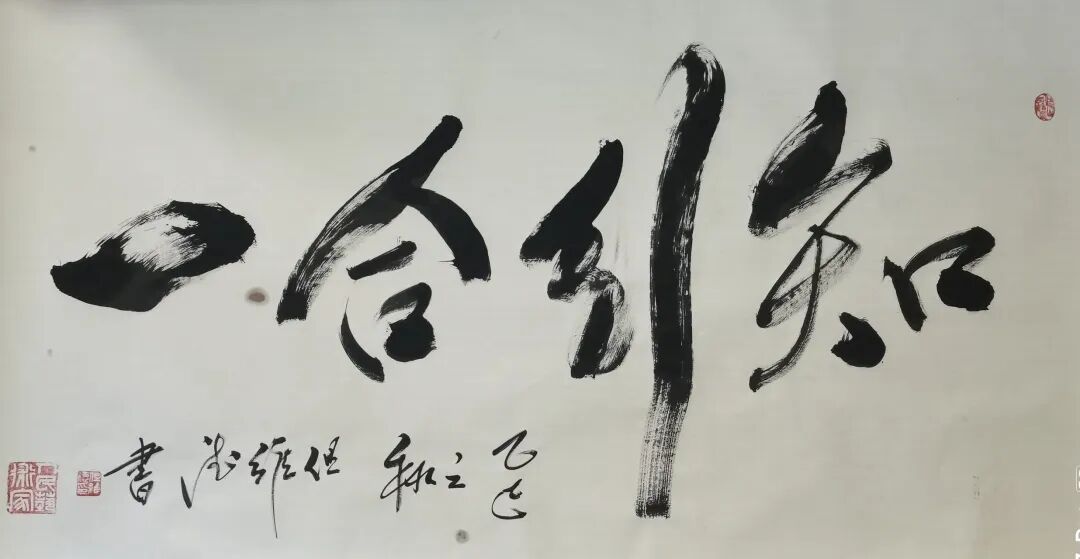 知行合一
乙巳之秋 維 書